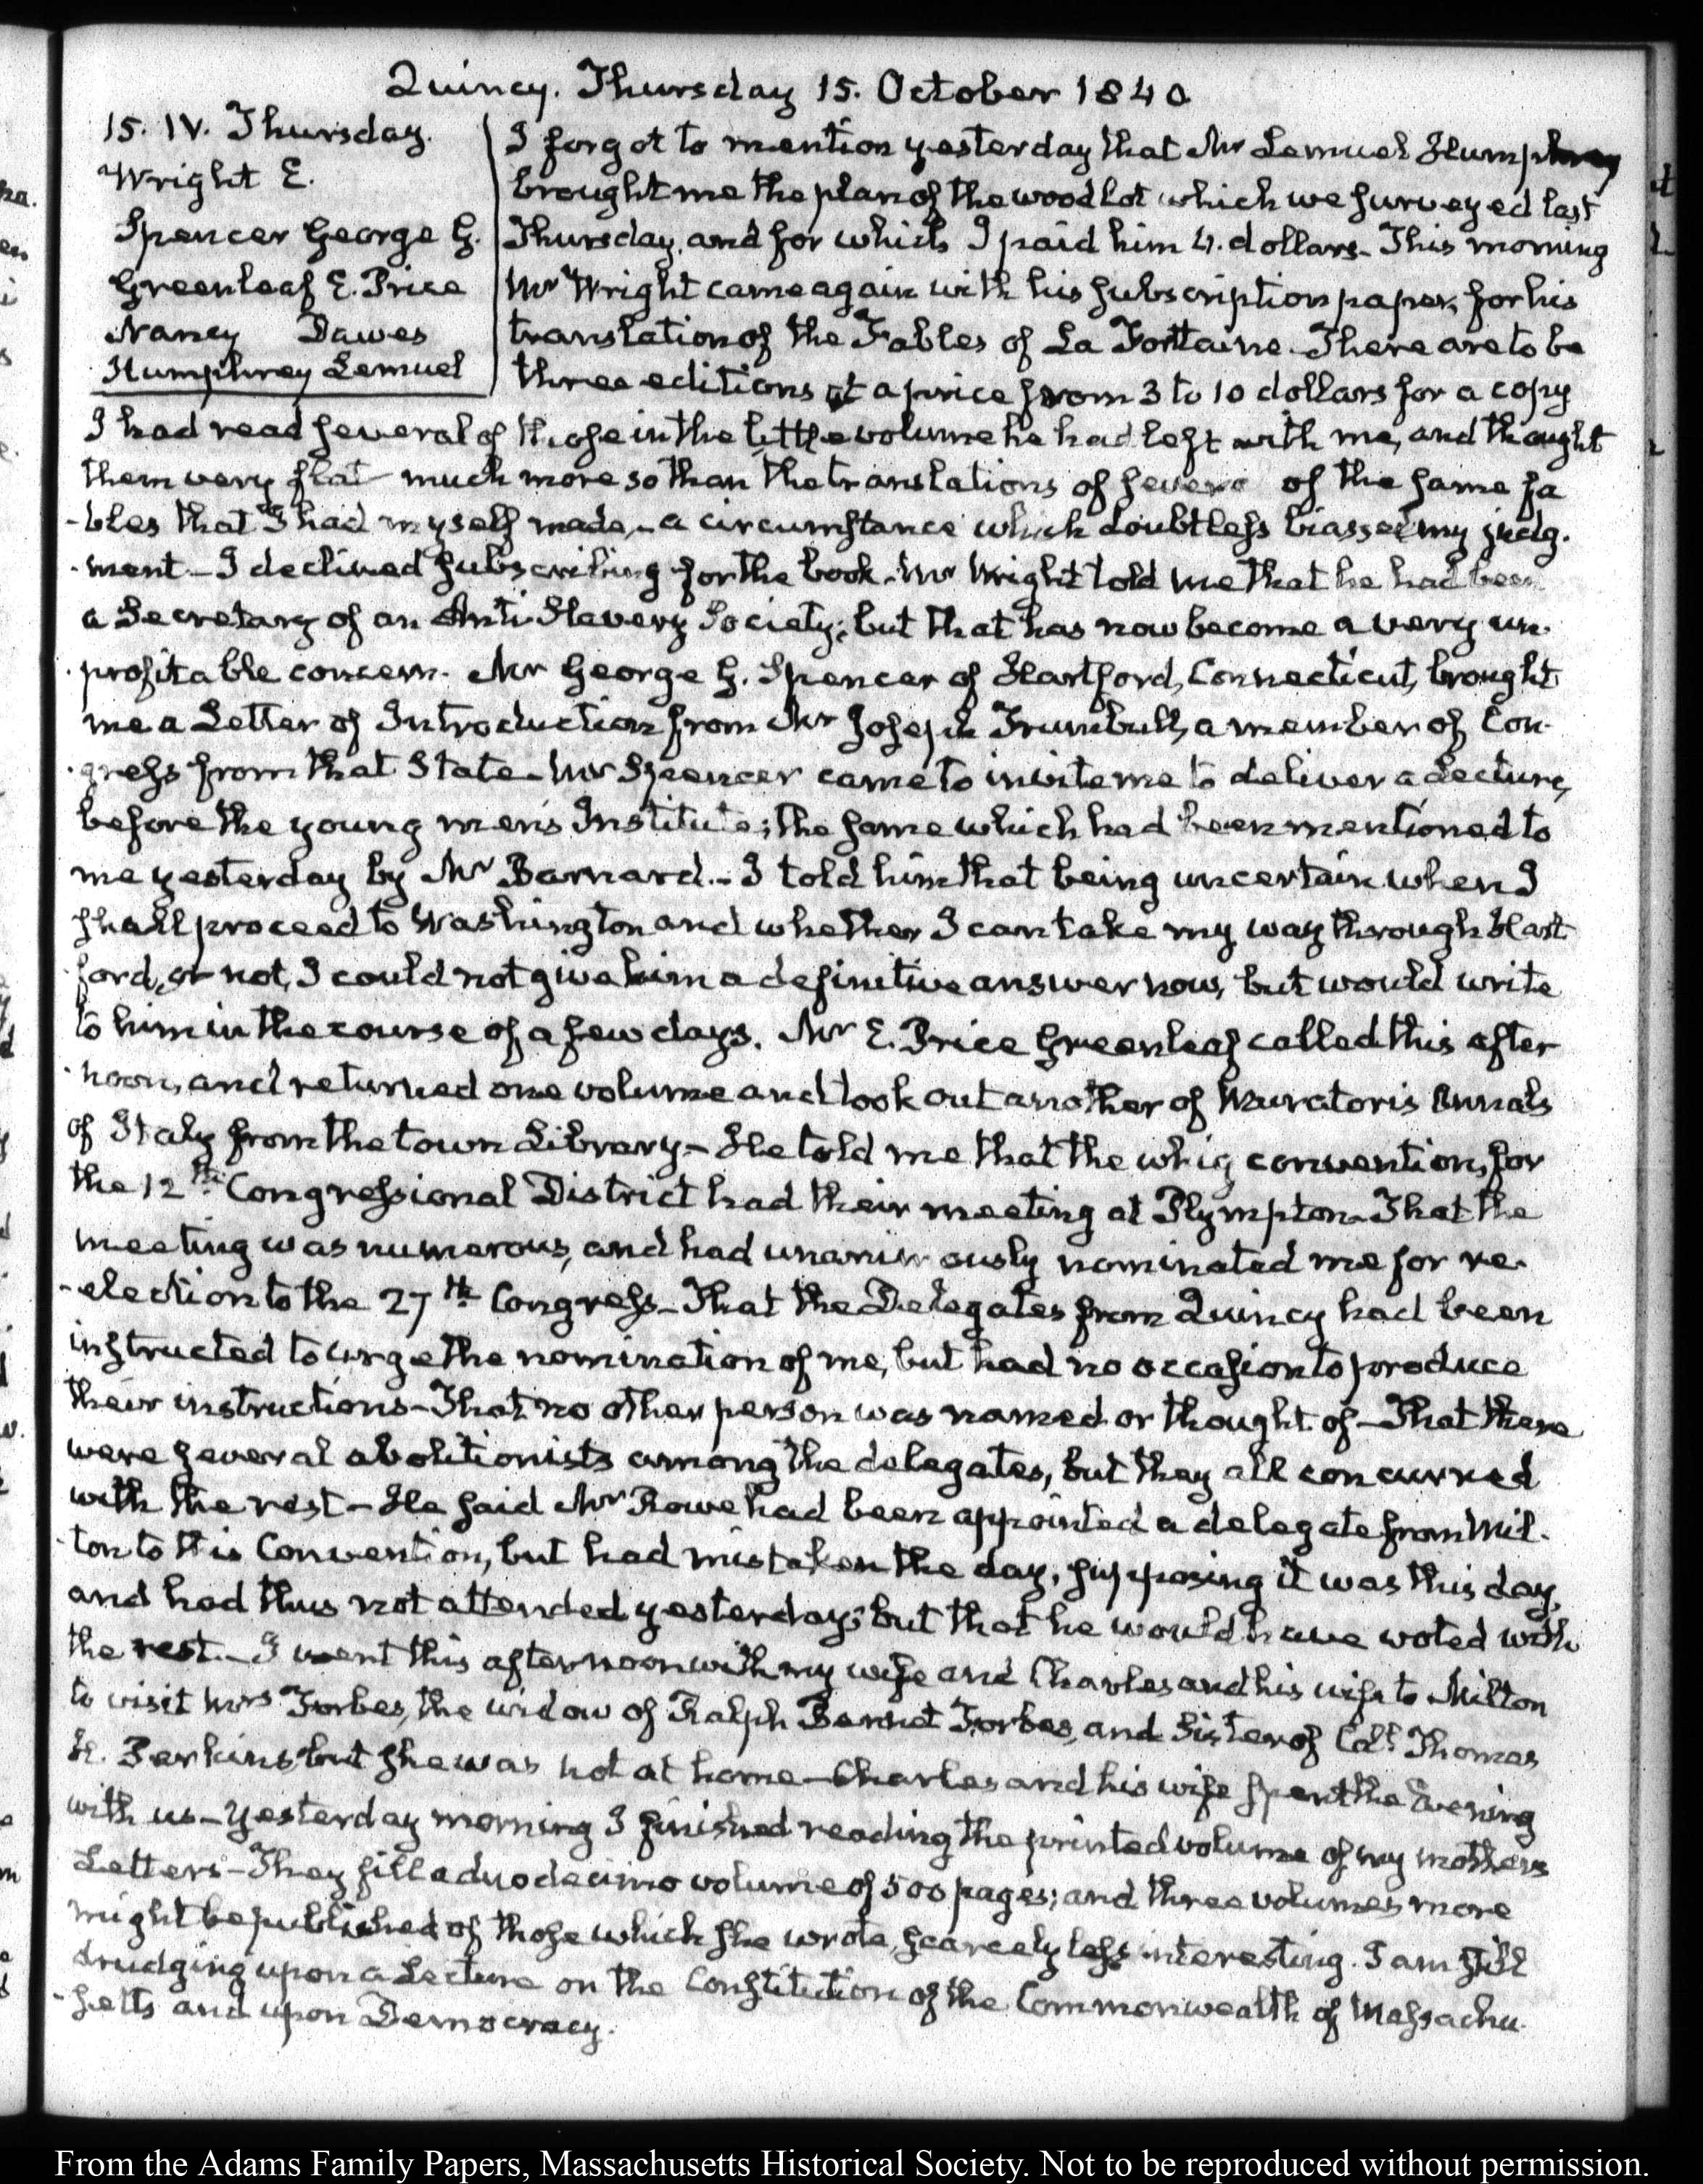 Quincy. Thursday 15. October 1840
15. IV. Thursday.
Wright E.
Spencer George G.
Greenleaf E. Price
Nancy Dawes
Humphrey Lemuel
I forgot to mention yesterday that Mr Lemuel Humphrey
brought me the plan of the wood lot which we surveyed last
Thursday, and for which I paid him 4. dollars— This morning
Mr Wright came again with his subscription paper, for his
translation of the Fables of La Fontaine— There are to be
three editions at a price from 3 to 10 dollars for a copy
I had read several of those in the little volume he had left with me, and thought
them very flat— much more so than the translations of several of the same fa
-bles that I had myself made,— a circumstance which doubtless biassed my judg-
-ment— I declined subscribing for the book. Mr Wright told me that he had been
a Secretary of an Anti-Slavery Society; but that has now become a very un-
-profitable concern. Mr George G. Spencer of Hartford, Connecticut, brought
me a Letter of Introduction from Mr Joseph Trumbull, a member of Con-
-gress from that State— Mr Spencer came to invite me to deliver a Lecture,
before the young men's Institute; the same which had been mentioned to
me yesterday by Mr Barnard.— I told him that being uncertain when I
shall proceed to Washington and whether I can take my way through Hart
-ford, or not, I could not give him a definitive answer now, but would write
to him in the course of a few days. Mr E. Price Greenleaf called this after
-noon, and returned one volume and took out another of Muratoris Annals
of Italy from the town Library— He told me that the whig convention, for
the 12th Congressional District had their meeting at Plympton— That the
meeting was numerous, and had unanimously nominated me for re-
-election to the 27th Congress— That the Delegates from Quincy had been
instructed to urge the nomination of me, but had no occasion to produce
their instructions— That no other person was named or thought of— That there
were several abolitionists among the delegates, but they all concurred
with the rest— He said Mr Rowe had been appointed a delegate from Mil-
-ton to this Convention, but had mistaken the day, supposing it was this day,
and had thus not attended yesterday; but that he would have voted with
the rest.— I went this afternoon with my wife and Charles and his wife to Milton
to visit Mrs Forbes, the widow of Ralph Bennet Forbes, and Sister of Coll Thomas
H. Perkins but she was not at home— Charles and his wife spent the Evening
with us— Yesterday morning I finished reading the printed volume of my mothers
Letters— They fill a duodecimo volume of 500 pages; and three volumes more
might be published of those which she wrote, scarcely less interesting. I am still
drudging upon a Lecture on the Constitution of the Commonwealth of Massachu-
-setts and upon Democracy.
From the Adams Family Papers, Massachusetts Historical Society. Not to be reproduced without permission.